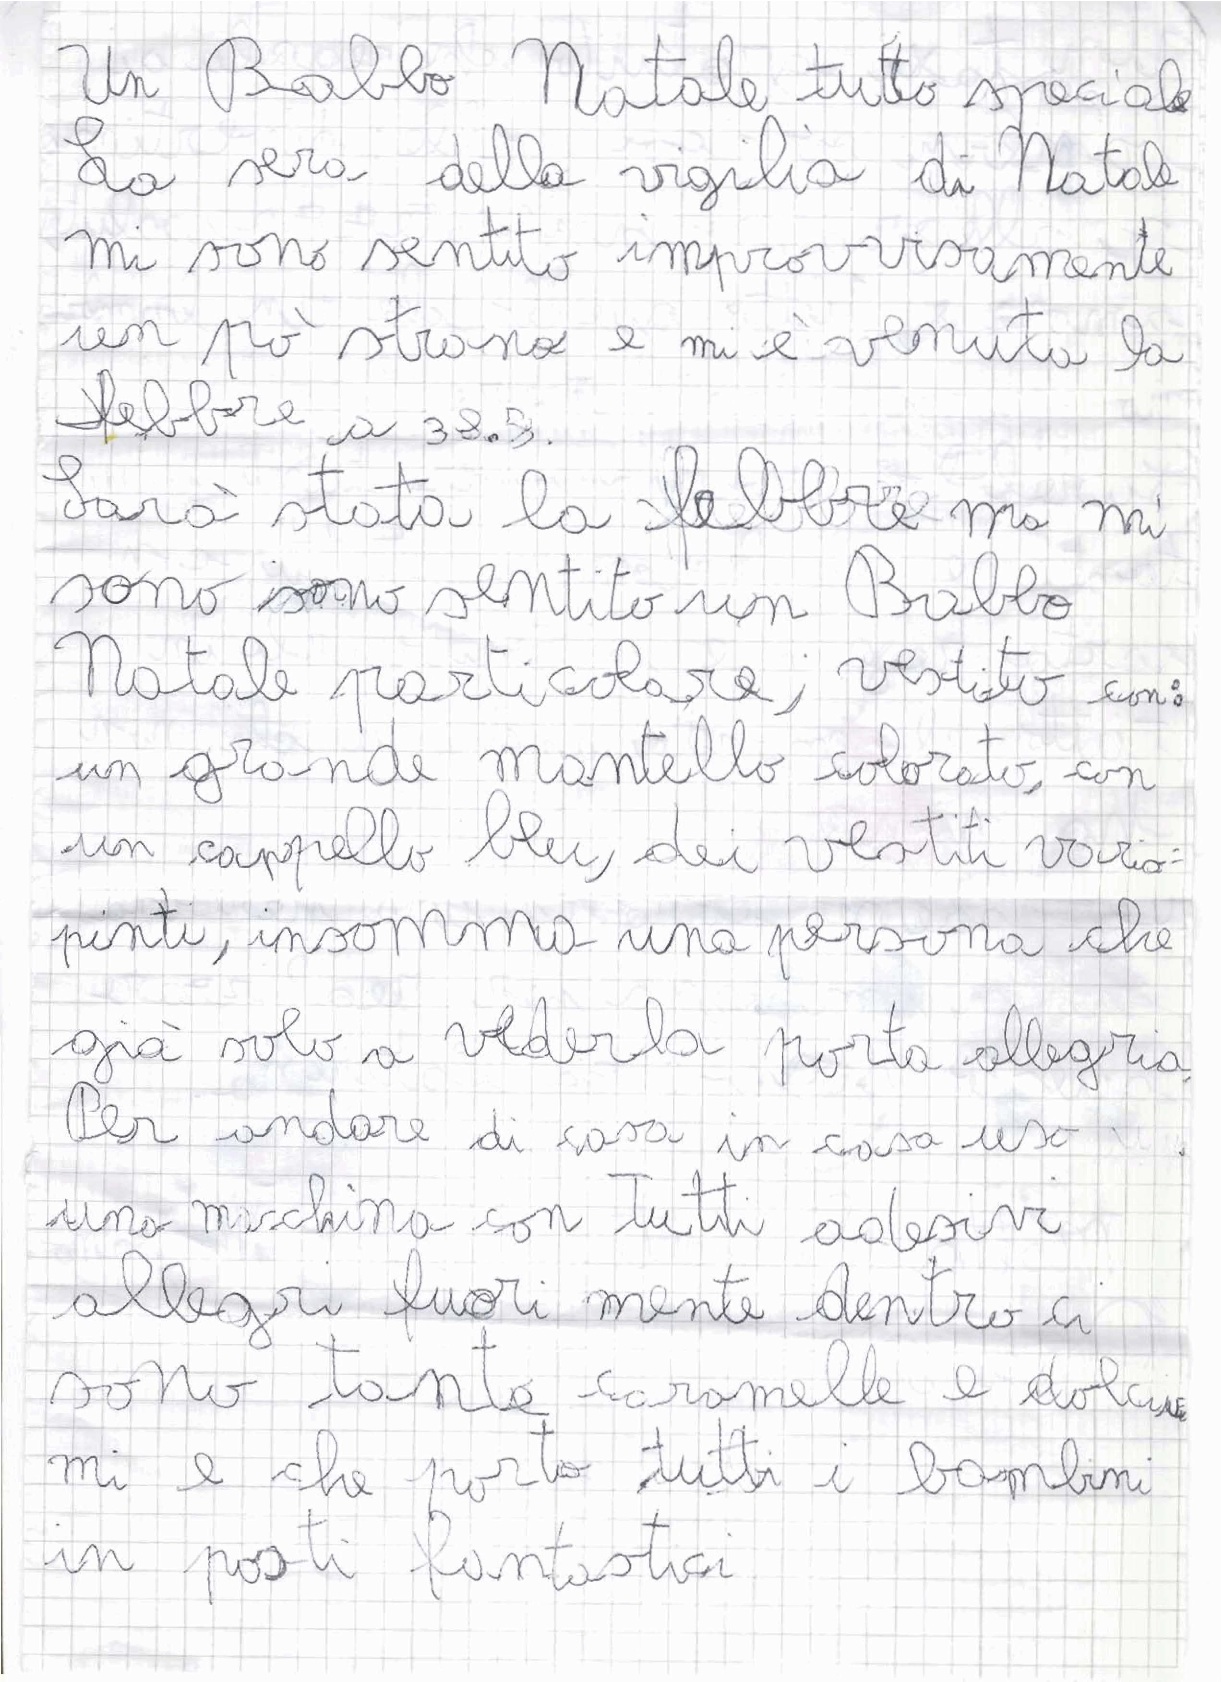 Un Babbo Natale tutto speciale
La sera della vigilia di Natale
mi sono sentito improvvisamente
un pò strano e mi è venuta la
febbre a 38.5.
Sarà stata la febbre ma mi
sono sono sentito un Babbo
Natale particolare; vestito con:
un grande mantello colorato, con
un cappello bleu, dei vestiti vario=
pinti, insomma una persona che
già solo a vederla porta allegria.
Per andare di casa in casa uso
una macchina con tutti adesivi
allegri fuori mente dentro ci
sono tante caramelle e dolci
mi e che porta tutti i bambini
in posti fantastici